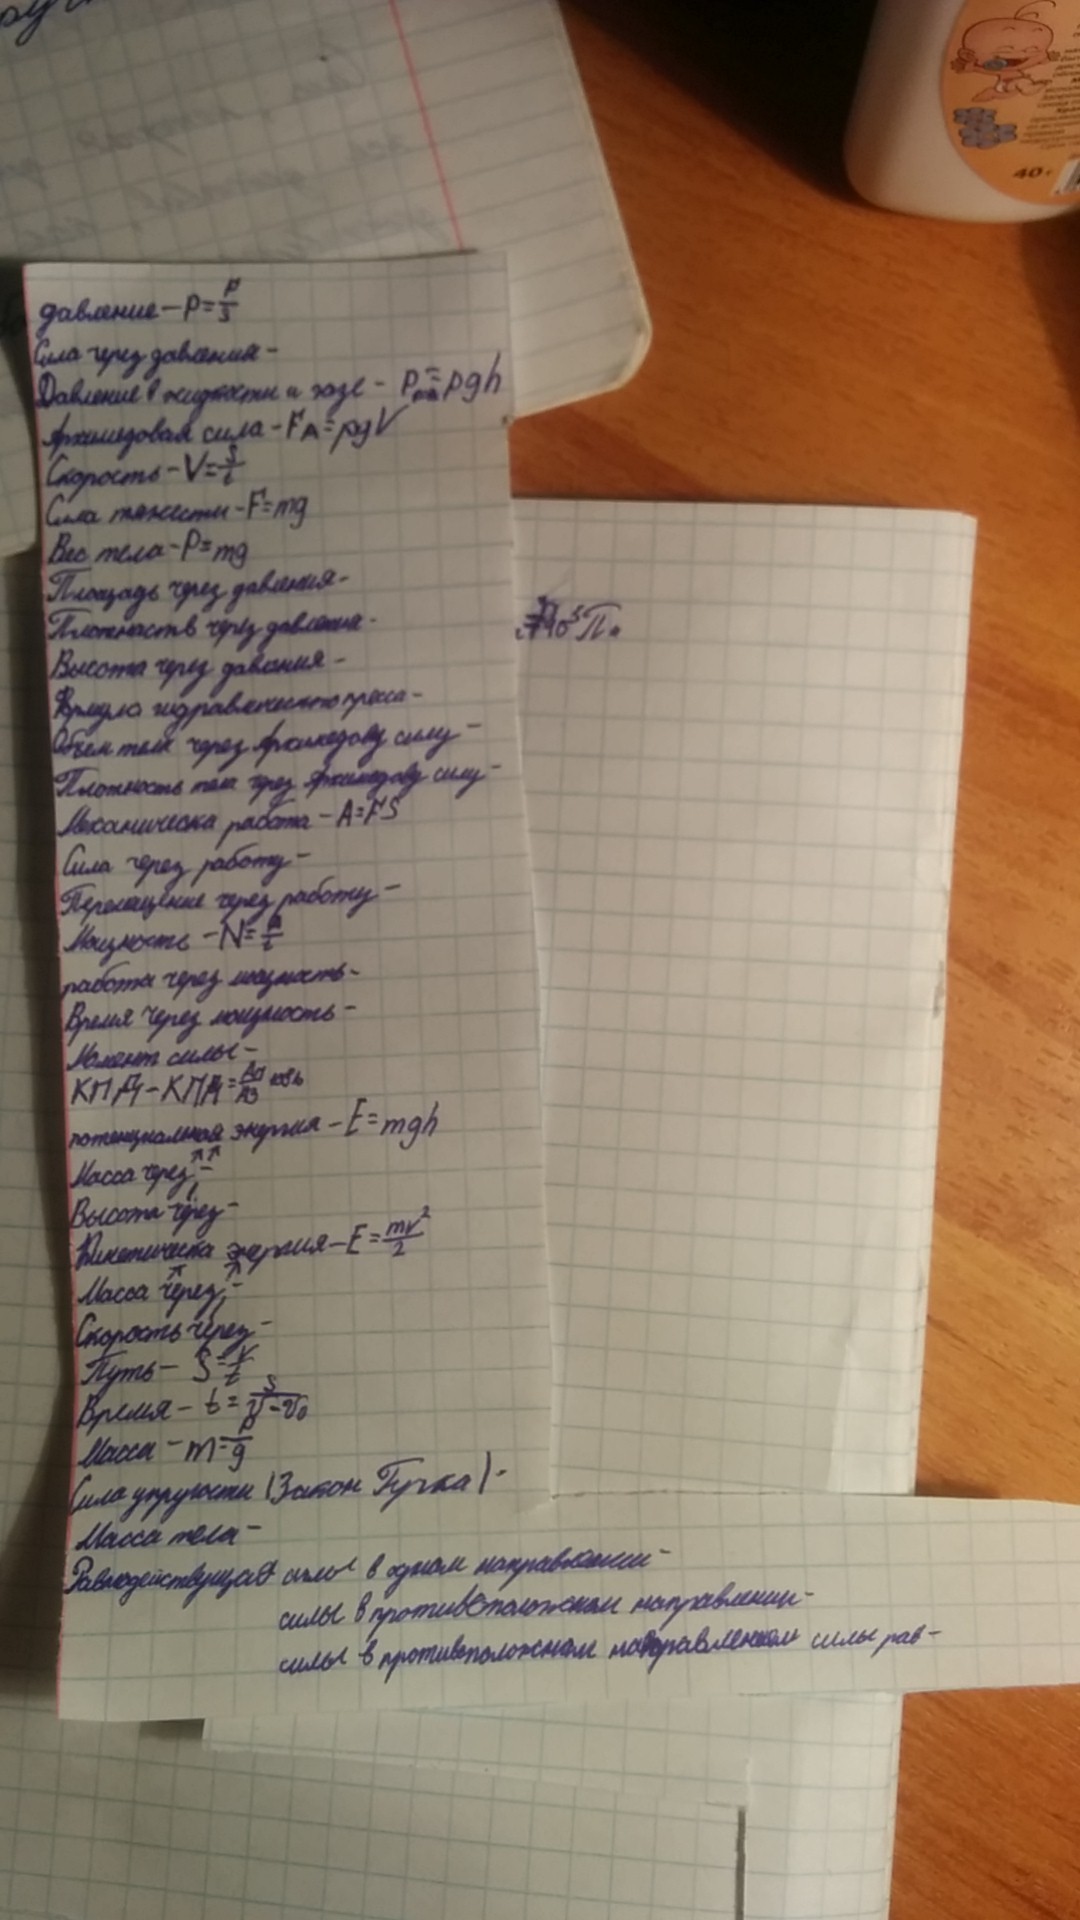 давление - P = F/S
Сила через давления -
Давление в жидкости и газе - P = pgh
Архимедовая сила - FA = pgV
Скорость - V = S/t
Сила тяжести - F = mg
Вес тела - P = mg
Площадь через давления -
Плотность через давления -
Высота через давления -
Формула гидравлического пресса -
Объем тела через Архимедову силу -
Плотность тела через Архимедову силу -
Механическа работа - A = FS
Сила через работу -
Перемещение через работу -
Мощность - N = A/t
работа через мощность -
Время через мощность -
Момент силы -
КПД - КПД = Ап/Аз 100%
потенциальная энергия - E = mgh
Масса через ↑↑ -
Высота через -
Кинетическа энергия - E = mv²/2
Масса через ↑ ↑ -
Скорость через -
Путь - S = V/t
Время - t = S/V-V₀
Масса - m = P/g
Сила упругости (Закон Гучка) -
Масса тела -
Равнодействующая силы в одном направлении -
силы в противоположном направлении -
силы в противоположном силы рав -
10⁵ Па
40 г